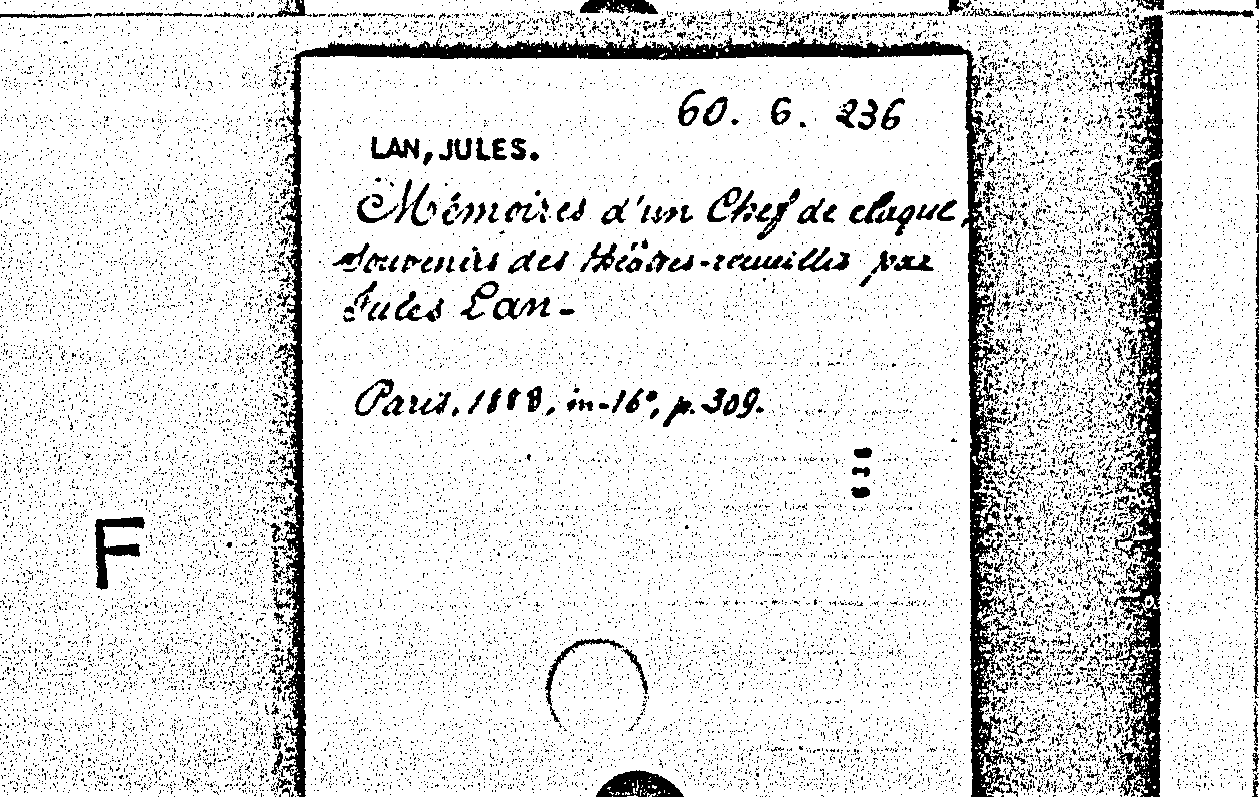 60. 6. 236
LAN, JULES.
Mémoires d'un Chef de claque,
Souvenirs des théâtres recueillis par
Jules Lan -
Paris, 1888, in-16°, p. 309.
F